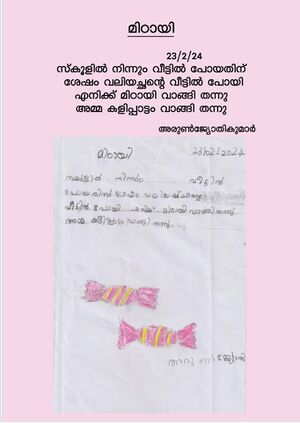 മിഠായി
23/2/24
സ്കൂളിൽ നിന്നും വീട്ടിൽ പോയതിന്
ശേഷം വലിയച്ഛന്റെ വീട്ടിൽ പോയി
എനിക്ക് മിഠായി വാങ്ങി തന്നു
അമ്മ കളിപ്പാട്ടം വാങ്ങി തന്നു
അരുൺജ്യോതികുമാർ
മിഠായി 23/02/2024
സ്കൂളിൽ നിന്നും വീട്ടിൽ
പോയതിന് ശേഷം വലിയച്ഛന്റെ
വീട്ടിൽ പോയി എനിക്ക് മിഠായി വാങ്ങി തന്നു
അമ്മ കളിപ്പാട്ടം വാങ്ങി തന്നു